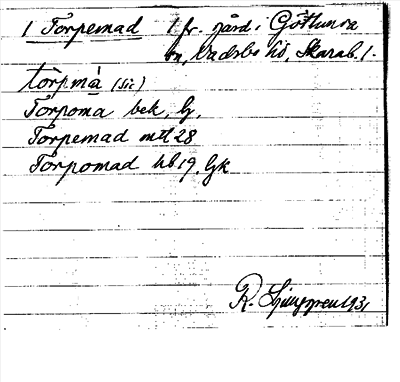 1 Torpemad 1 fr. gård i Götlunda
sn, Vadsbo hd, Skarab. l.
torpmà (sic)
Torpoma bek, lg,
Torpemad mtl 28
Torpomad hb 19. lgk
R. Ljunggren 1931